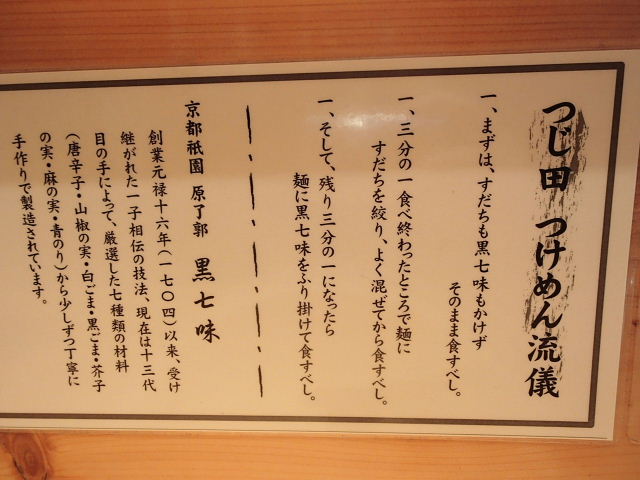 つじ田 つけめん流儀
一、まずは、すだちも黒七味もかけず
そのまま食すべし。
一、三分の一食べ終わったところで麺に
すだちを絞り、よく混ぜてから食すべし。
一、そして、残り三分の一になったら
麺に黒七味をふり掛けて食すべし。
京都祇園 原了郭 黒七味
創業元禄十六年(一七〇四)以来、受け
継がれた一子相伝の技法、現在は十三代
目の手によって、厳選した七種類の材料
(唐辛子・山椒の実・白ごま・黒ごま・芥子
の実・麻の実・青のり)から少しずつ丁寧に
手作りで製造されています。